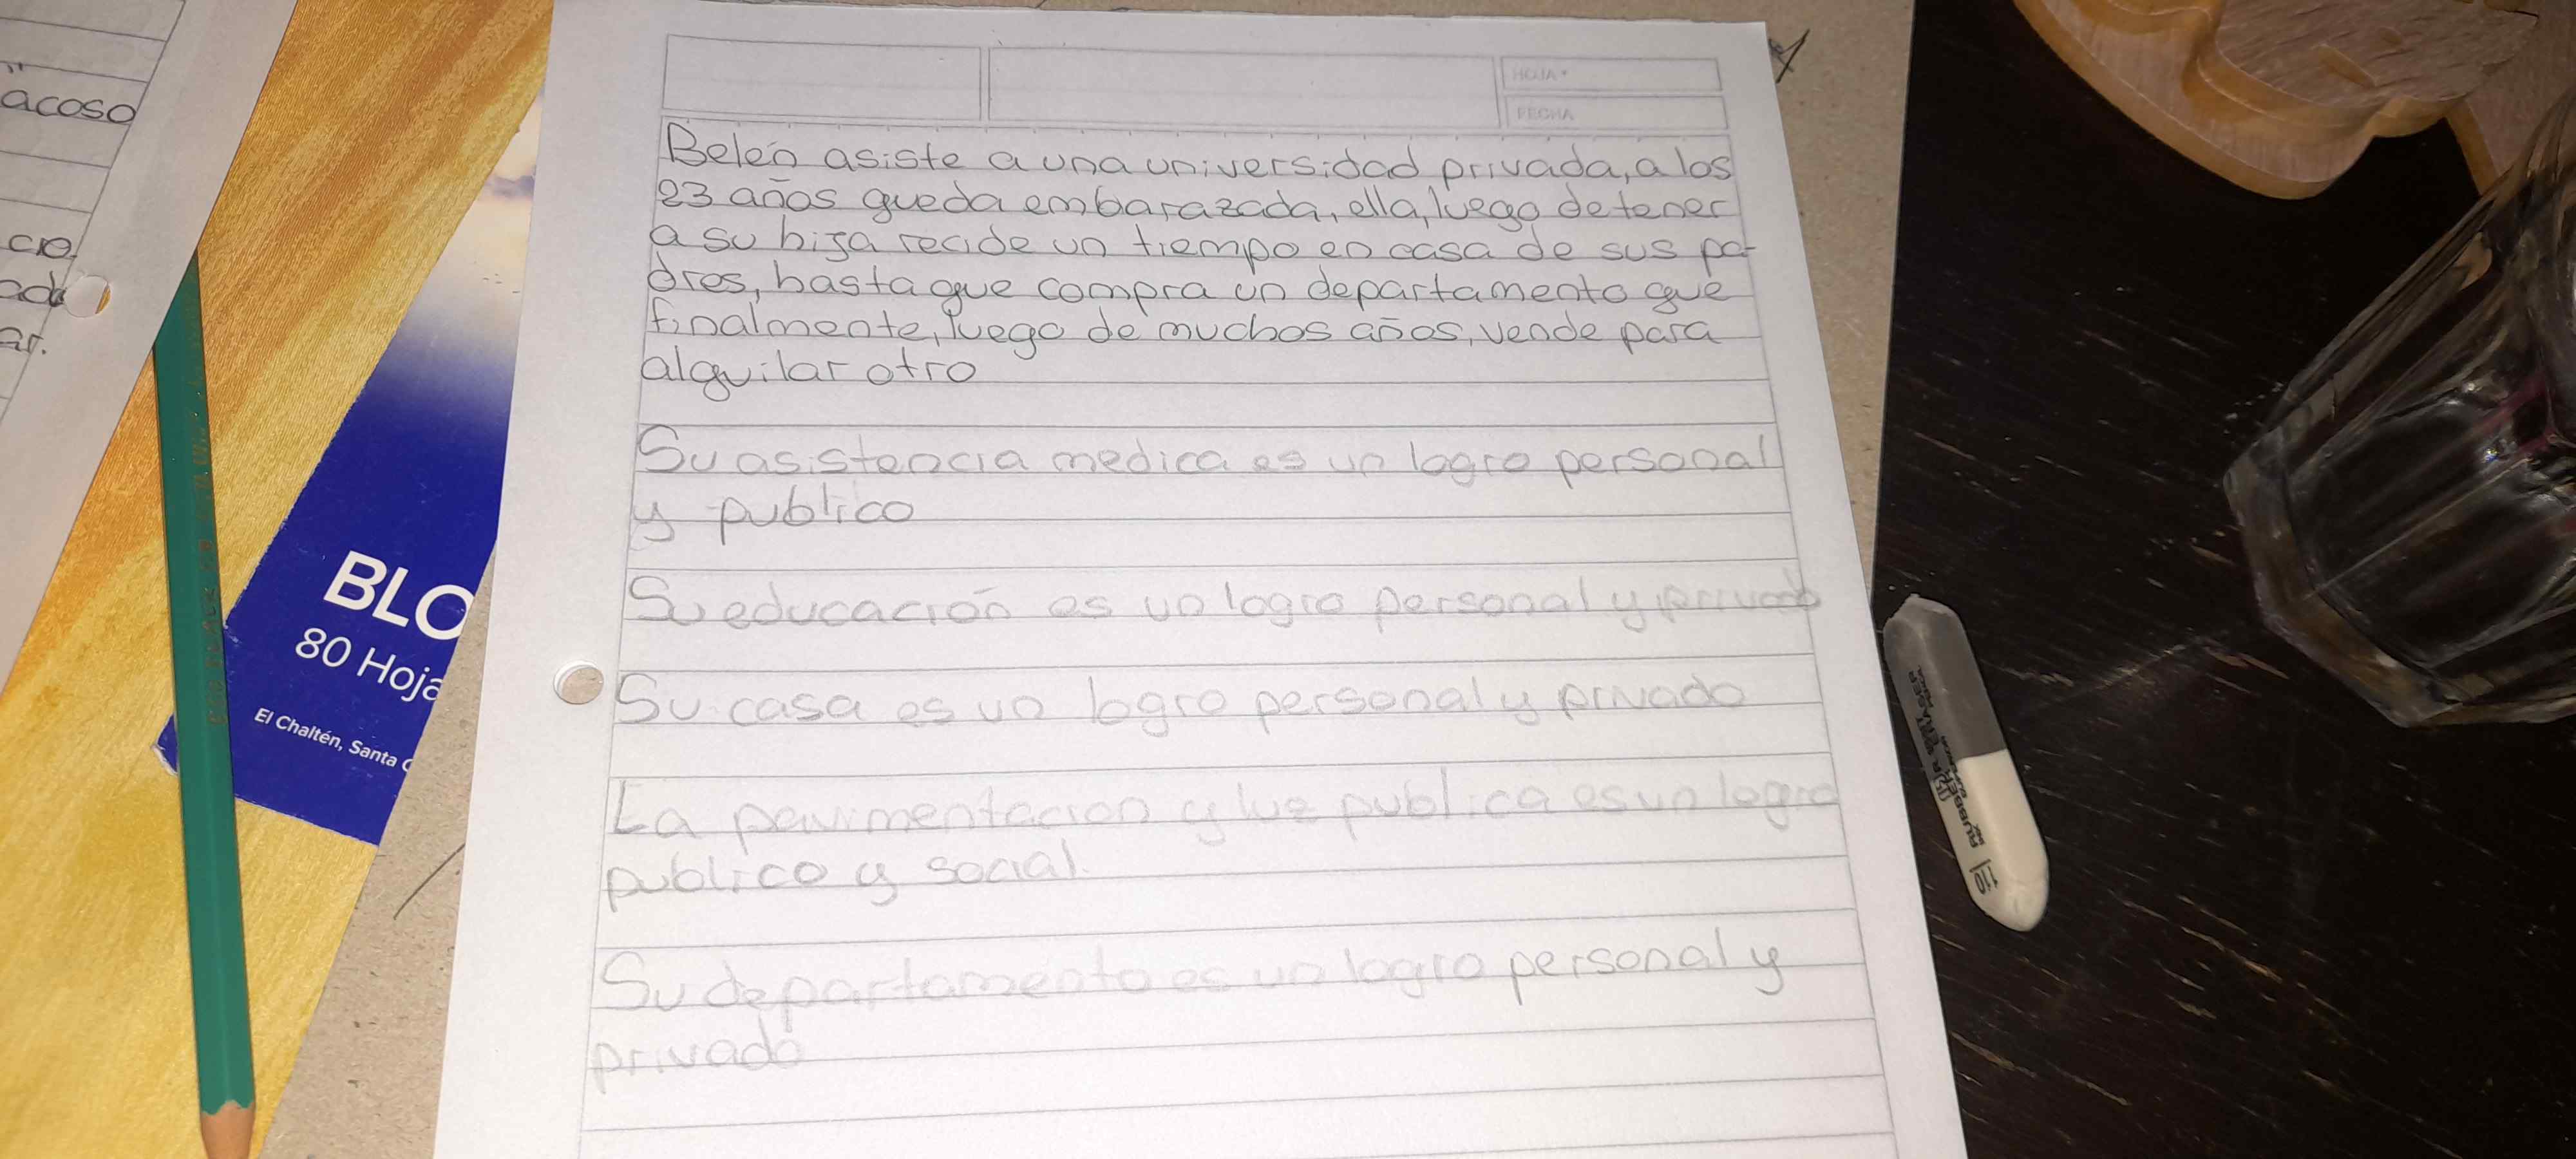 acoso
cio
ad
ar.
BLO
80 Hoja
El Chaltén, Santa C
HOJA Nº
FECHA
Belén asiste a una universidad privada, a los
23 años queda embarazada, ella, luego de tener
a su hija recide un tiempo en casa de sus pa-
dres, hasta que compra un departamento que
finalmente, luego de muchos años, vende para
alquilar otro
Su asistencia medica es un logro personal
y publico
Su educación es un logro personal y privado
Su casa es un logro personal y privado
La pavimentacion y luz publica es un logro
publico y social.
Su departamento es un logro personal y
privado